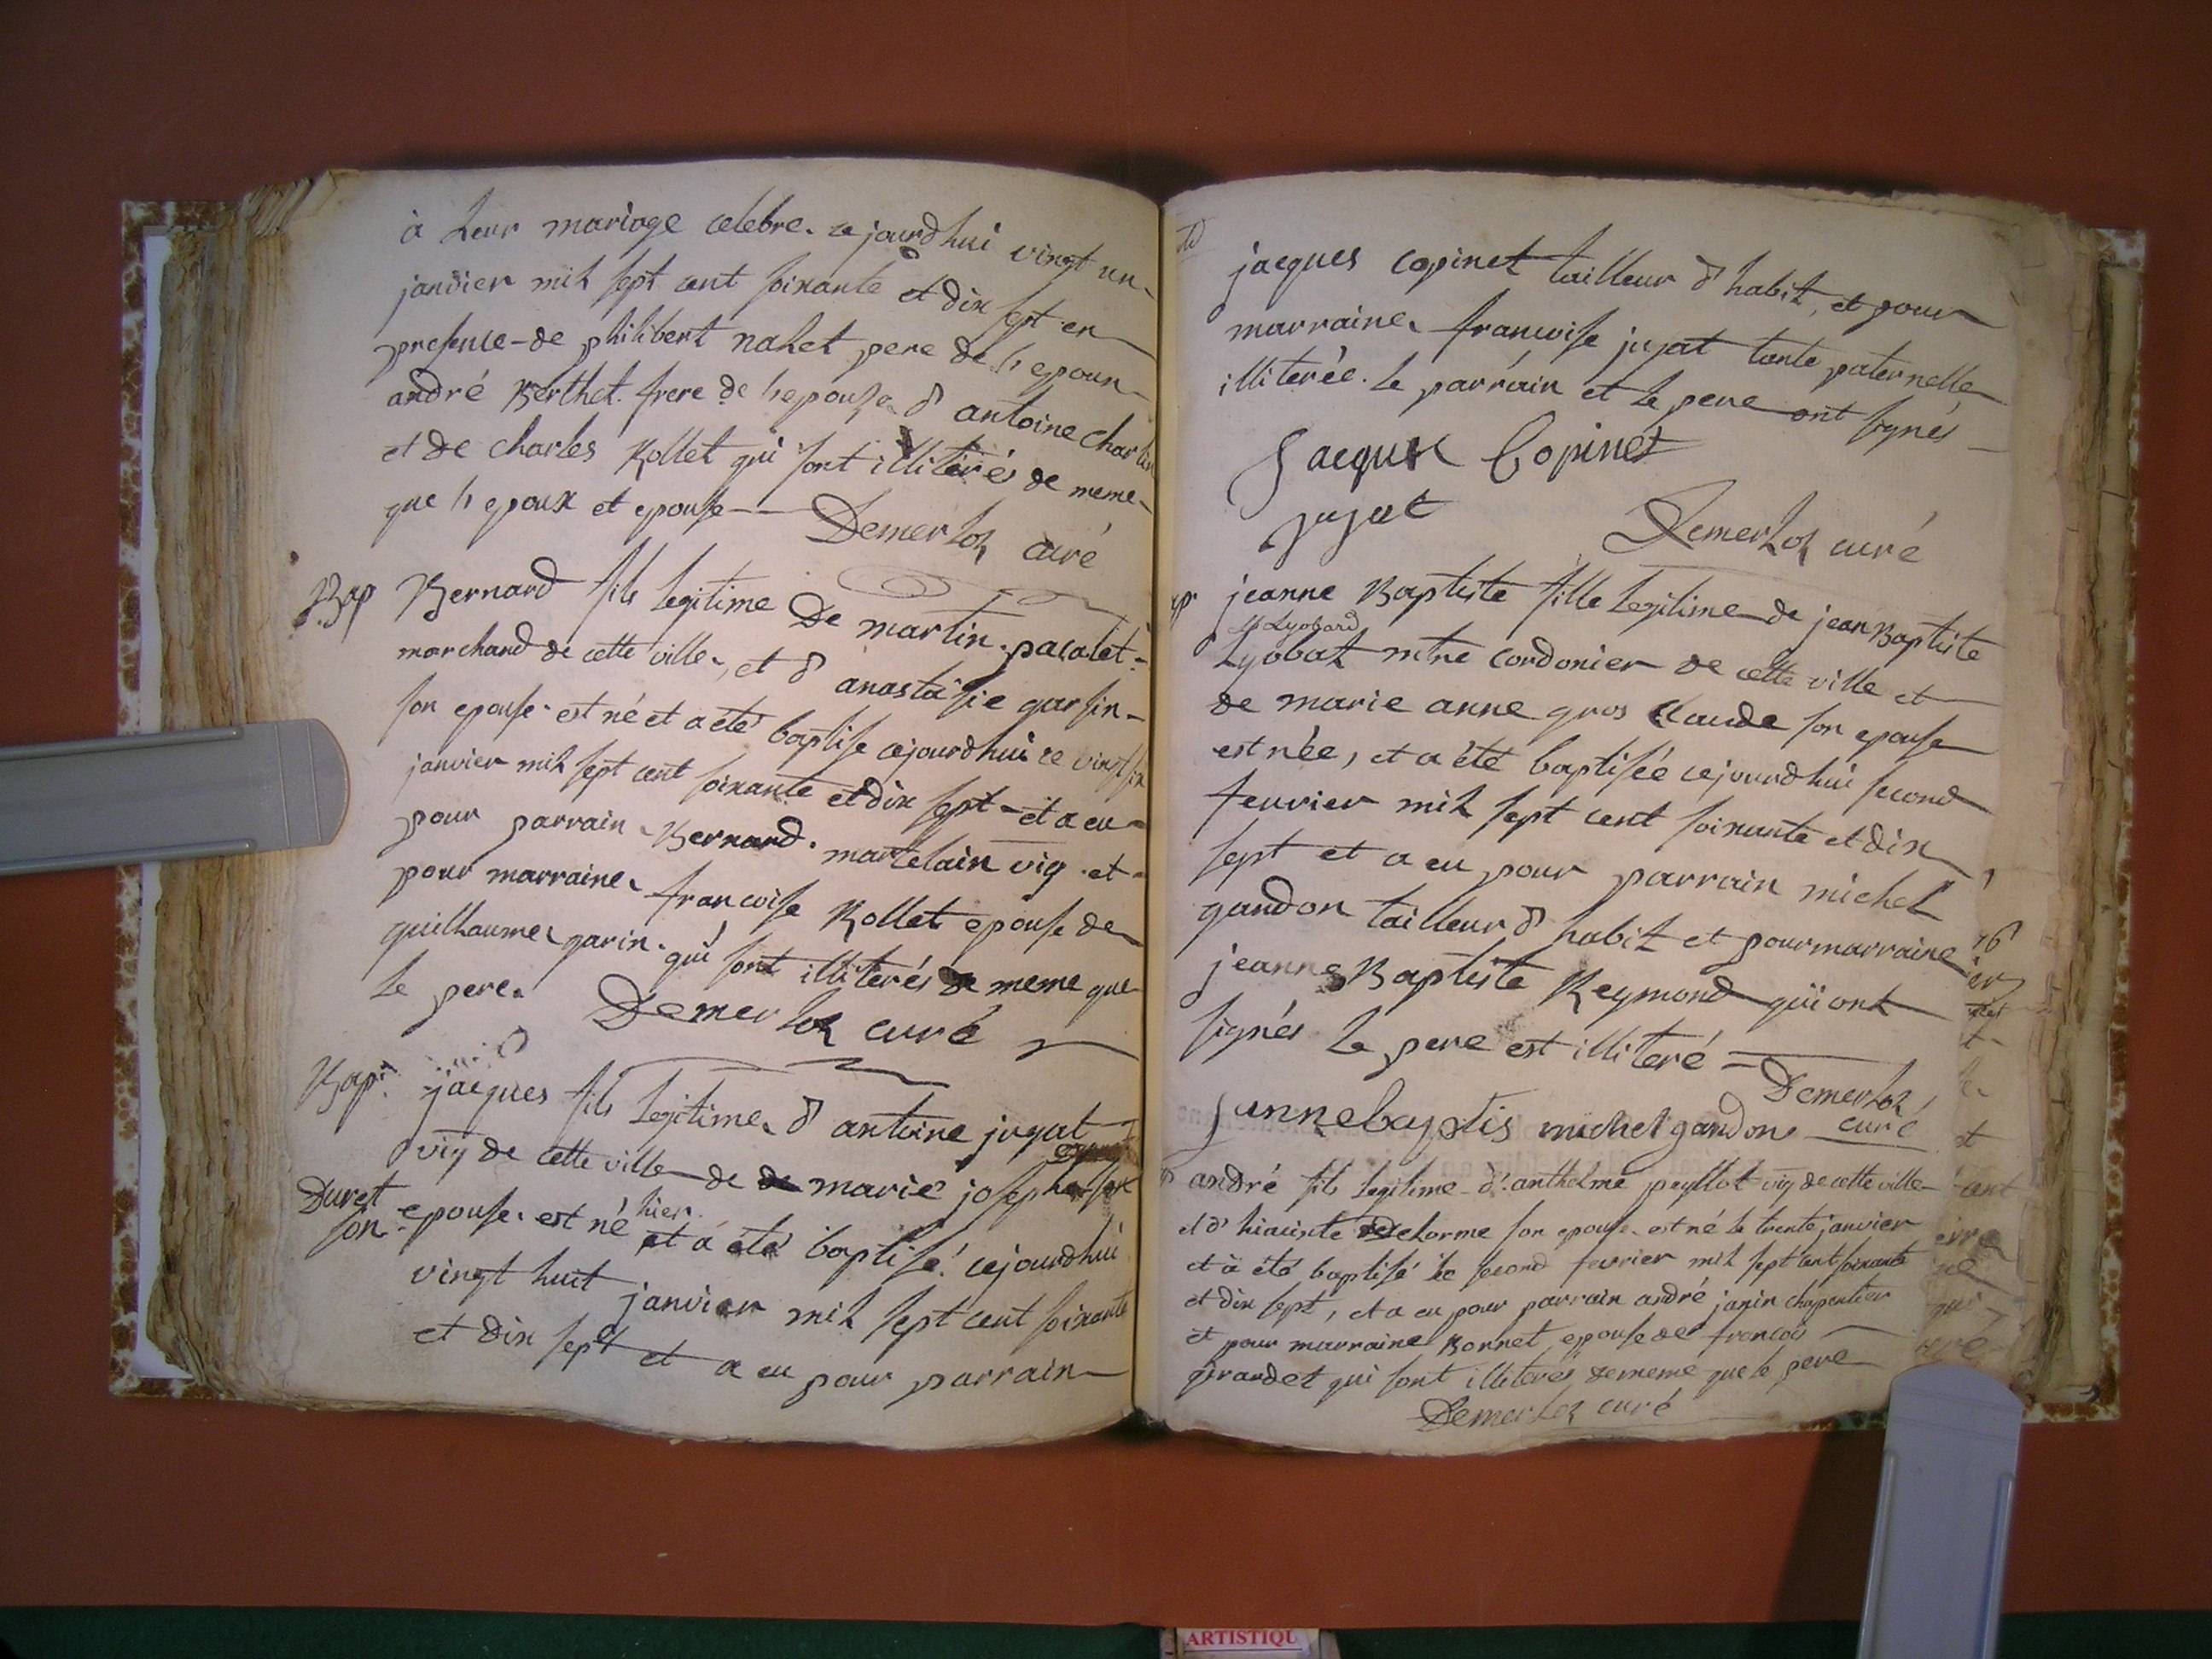 à leur mariage celebre. cejourdhui vingt un
janvier mil sept cent soixante et dix sept en
presence de philibert nahet pere de l'epoux
andré Berthet. frere de l'epouse d'antoine Charlin
et de charles Rollet qui sont illiterés de meme
que l'epoux et epouse Demerloz curé
Bap Bernard fils legitime De martin pacalet
marchand de cette ville, et d'anastasie garsin
son epouse est né et a été baptise cejourdhui ce vingt six
janvier mil sept cent soixante et dix sept et a eu
pour parrain Bernard martelain vig et
pour marraine francoise Rollet epouse de
guilhaume garin qui sont illiterés de meme que
le pere. Demerloz curé
Bap. jacques fils legitime d'antoine jugat
vig de cette ville de marie josephe
Duret
son epouse est né hier et a été baptisé cejourdhui
vingt huit janvier mil sept cent soixante
et dix sept et a eu pour parrain
jacques copinet tailleur d'habit, et pour
marraine francoise jugat tante paternelle
illiterée. le parrain et le pere ont signés
Jacques Copinet
jugat Demerloz curé
jeanne Baptiste fille legitime de jean Baptiste
Lyobard
Lyobat mtre cordonier de cette ville et
de marie anne gros claude son epouse
est née, et a été baptisée cejourdhui second
fevrier mil sept cent soixante et dix
sept et a eu pour parrain michel
gandon tailleur d'habit et pour marraine
jeanne Baptiste Reymond qui ont
signés le pere est illiteré Demerloz
Jannebaptis michel gandon curé
andré fils legitime d'anthelme peyllot vig de cette ville
et d'hiacinte Delorme son epouse est né le trente janvier
et a été baptisé le second fevrier mil sept cent soixante
et dix sept, et a eu pour parrain andré janin charpentier
et pour marraine Bonnet epouse de francois
girardet qui sont illiterés dememe que le pere
Demerloz curé
ARTISTIQU